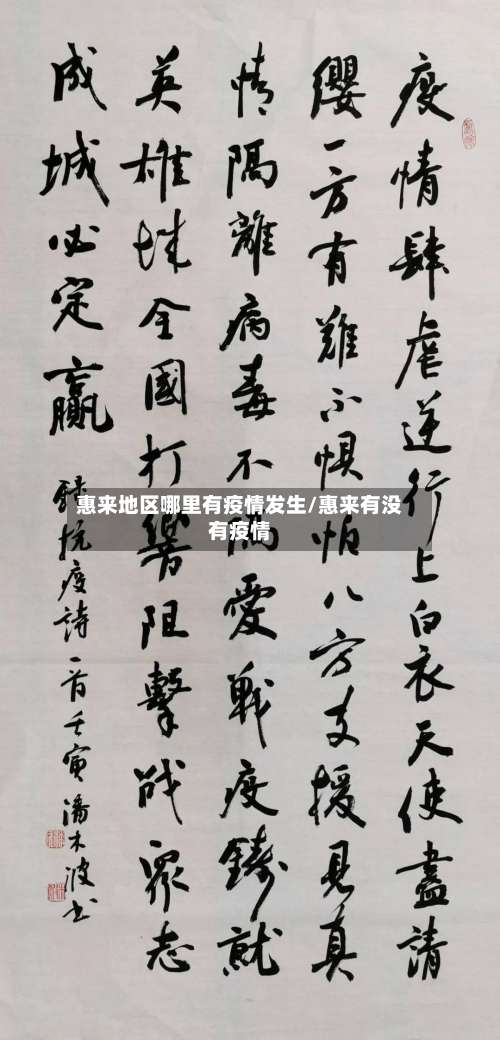 疫情肆虐逆行上白衣天使盡請
纓一方有難不懼怕八方支援見真
情隔離病毒不隔愛戰疫鑄就
英雄城全國打響阻擊战眾志
成城必定贏
錄抗疫詩一首壬寅潘木波书
惠来地区哪里有疫情发生/惠来有没
有疫情